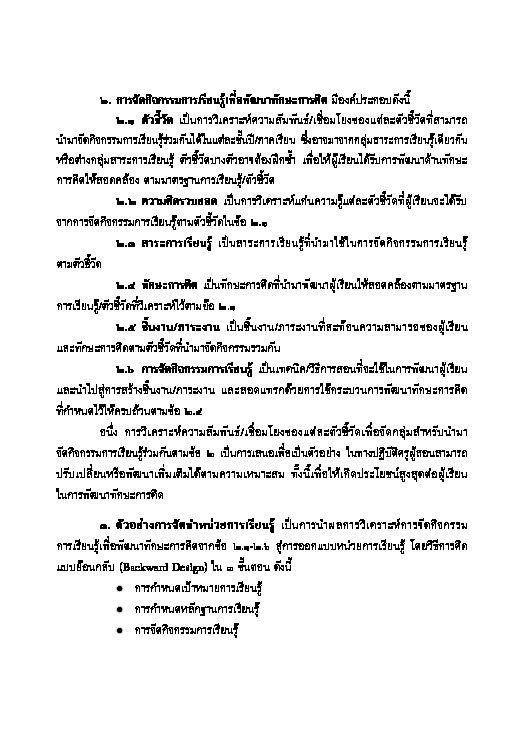 ๒. การจัดกิจกรรมการเรียนรู้เพื่อพัฒนาทักษะการคิด มีองค์ประกอบดังนี้
๒.๑ ตัวชี้วัด เป็นการวิเคราะห์ความสัมพันธ์/เชื่อมโยงของแต่ละตัวชี้วัดที่สามารถ
นำมาจัดกิจกรรมการเรียนรู้ร่วมกันได้ในแต่ละชั้นปี/ภาคเรียน ซึ่งอาจมาจากกลุ่มสาระการเรียนรู้เดียวกัน
หรือต่างกลุ่มสาระการเรียนรู้ ตัวชี้วัดบางตัวอาจต้องฝึกซ้ำ เพื่อให้ผู้เรียนได้รับการพัฒนาด้านทักษะ
การคิดให้สอดคล้อง ตามมาตรฐานการเรียนรู้/ตัวชี้วัด
๒.๒ ความคิดรวบยอด เป็นการวิเคราะห์แก่นความรู้แต่ละตัวชี้วัดที่ผู้เรียนจะได้รับ
จากการจัดกิจกรรมการเรียนรู้ตามตัวชี้วัดในข้อ ๒.๑
๒.๓ สาระการเรียนรู้ เป็นสาระการเรียนรู้ที่นำมาใช้ในการจัดกิจกรรมการเรียนรู้
ตามตัวชี้วัด
๒.๔ ทักษะการคิด เป็นทักษะการคิดที่นำมาพัฒนาผู้เรียนให้สอดคล้องตามมาตรฐาน
การเรียนรู้/ตัวชี้วัดที่วิเคราะห์ไว้ตามข้อ ๒.๑
๒.๕ ชิ้นงาน/ภาระงาน เป็นชิ้นงาน/ภาระงานที่สะท้อนความสามารถของผู้เรียน
และทักษะการคิดตามตัวชี้วัดที่นำมาจัดกิจกรรมรวมกัน
๒.๖ การจัดกิจกรรมการเรียนรู้ เป็นเทคนิค/วิธีการสอนที่จะใช้ในการพัฒนาผู้เรียน
และนำไปสู่การสร้างชิ้นงาน/ภาระงาน และสอดแทรกด้วยการใช้กระบวนการพัฒนาทักษะการคิด
ที่กำหนดไว้ให้ครบถ้วนตามข้อ ๒.๔
อนึ่ง การวิเคราะห์ความสัมพันธ์/เชื่อมโยงของแต่ละตัวชี้วัดเพื่อจัดกลุ่มสำหรับนำมา
จัดกิจกรรมการเรียนรู้ร่วมกันตามข้อ ๒ เป็นการเสนอเพื่อเป็นตัวอย่าง ในทางปฏิบัติครูผู้สอนสามารถ
ปรับเปลี่ยนหรือพัฒนาเพิ่มเติมได้ตามความเหมาะสม ทั้งนี้เพื่อให้เกิดประโยชน์สูงสุดต่อผู้เรียน
ในการพัฒนาทักษะการคิด
๓. ตัวอย่างการจัดทำหน่วยการเรียนรู้ เป็นการนำผลการวิเคราะห์การจัดกิจกรรม
การเรียนรู้เพื่อพัฒนาทักษะการคิดจากข้อ ๒.๑-๒.๖ สู่การออกแบบหน่วยการเรียนรู้ โดยวิธีการคิด
แบบย้อนกลับ (Backward Design) ใน ๓ ขั้นตอน ดังนี้
● การกำหนดเป้าหมายการเรียนรู้
● การกำหนดหลักฐานการเรียนรู้
● การจัดกิจกรรมการเรียนรู้